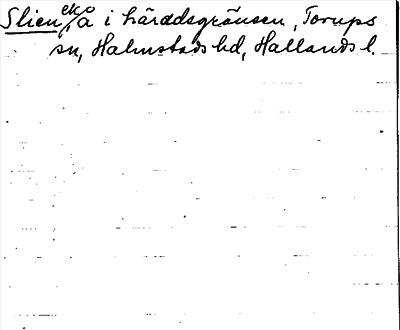 Slien, ek å i häradsgränsen, Torups
sn, Halmstads hd, Hallands l.